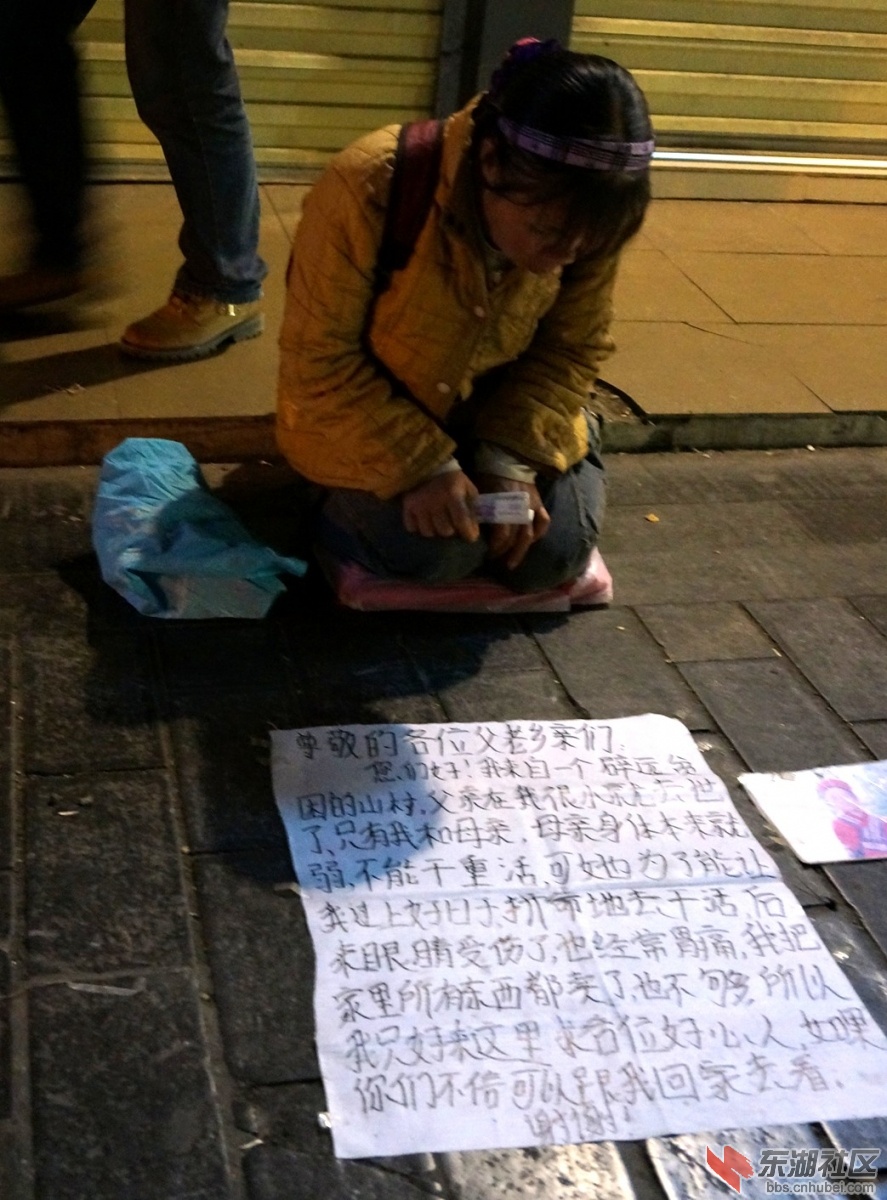 尊敬的各位父老乡亲们
您们好!我来自一个碎远贫
困的山村,父亲在我很小就去世
了,只有我和母亲,母亲身体本来就
弱,不能干重活,可她为了能让
我过上好日子,拚命地去干活,后
来眼睛受伤了,也经常胃痛,我把
家里所有东西都卖了,也不够,所以
我只好来这里求各位好心人,如果
你们不信可以跟我回家去看.
谢谢!
东湖社区
bbs.cnhubei.com